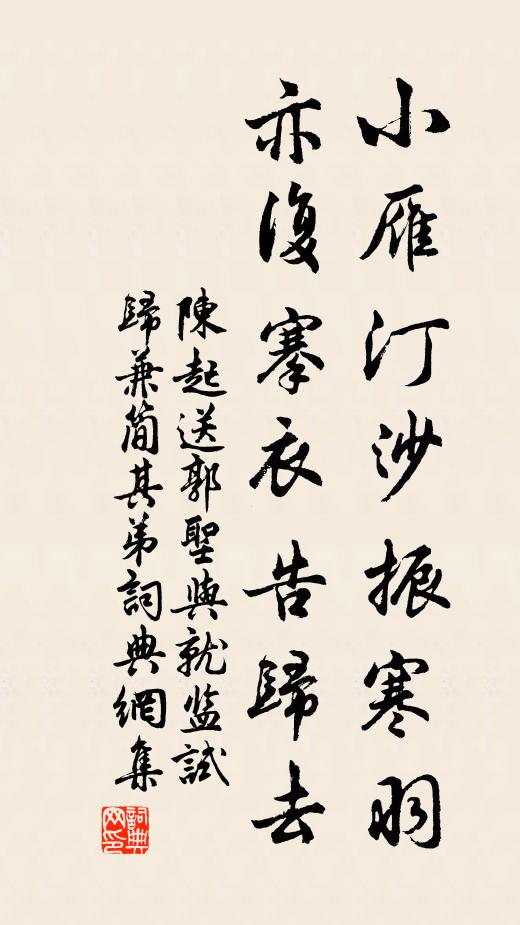 小雁汀沙振寒羽
亦復搴衣告歸去
陳起送郭聖與就监試
歸兼简其弟詞典網集
詞典
网印